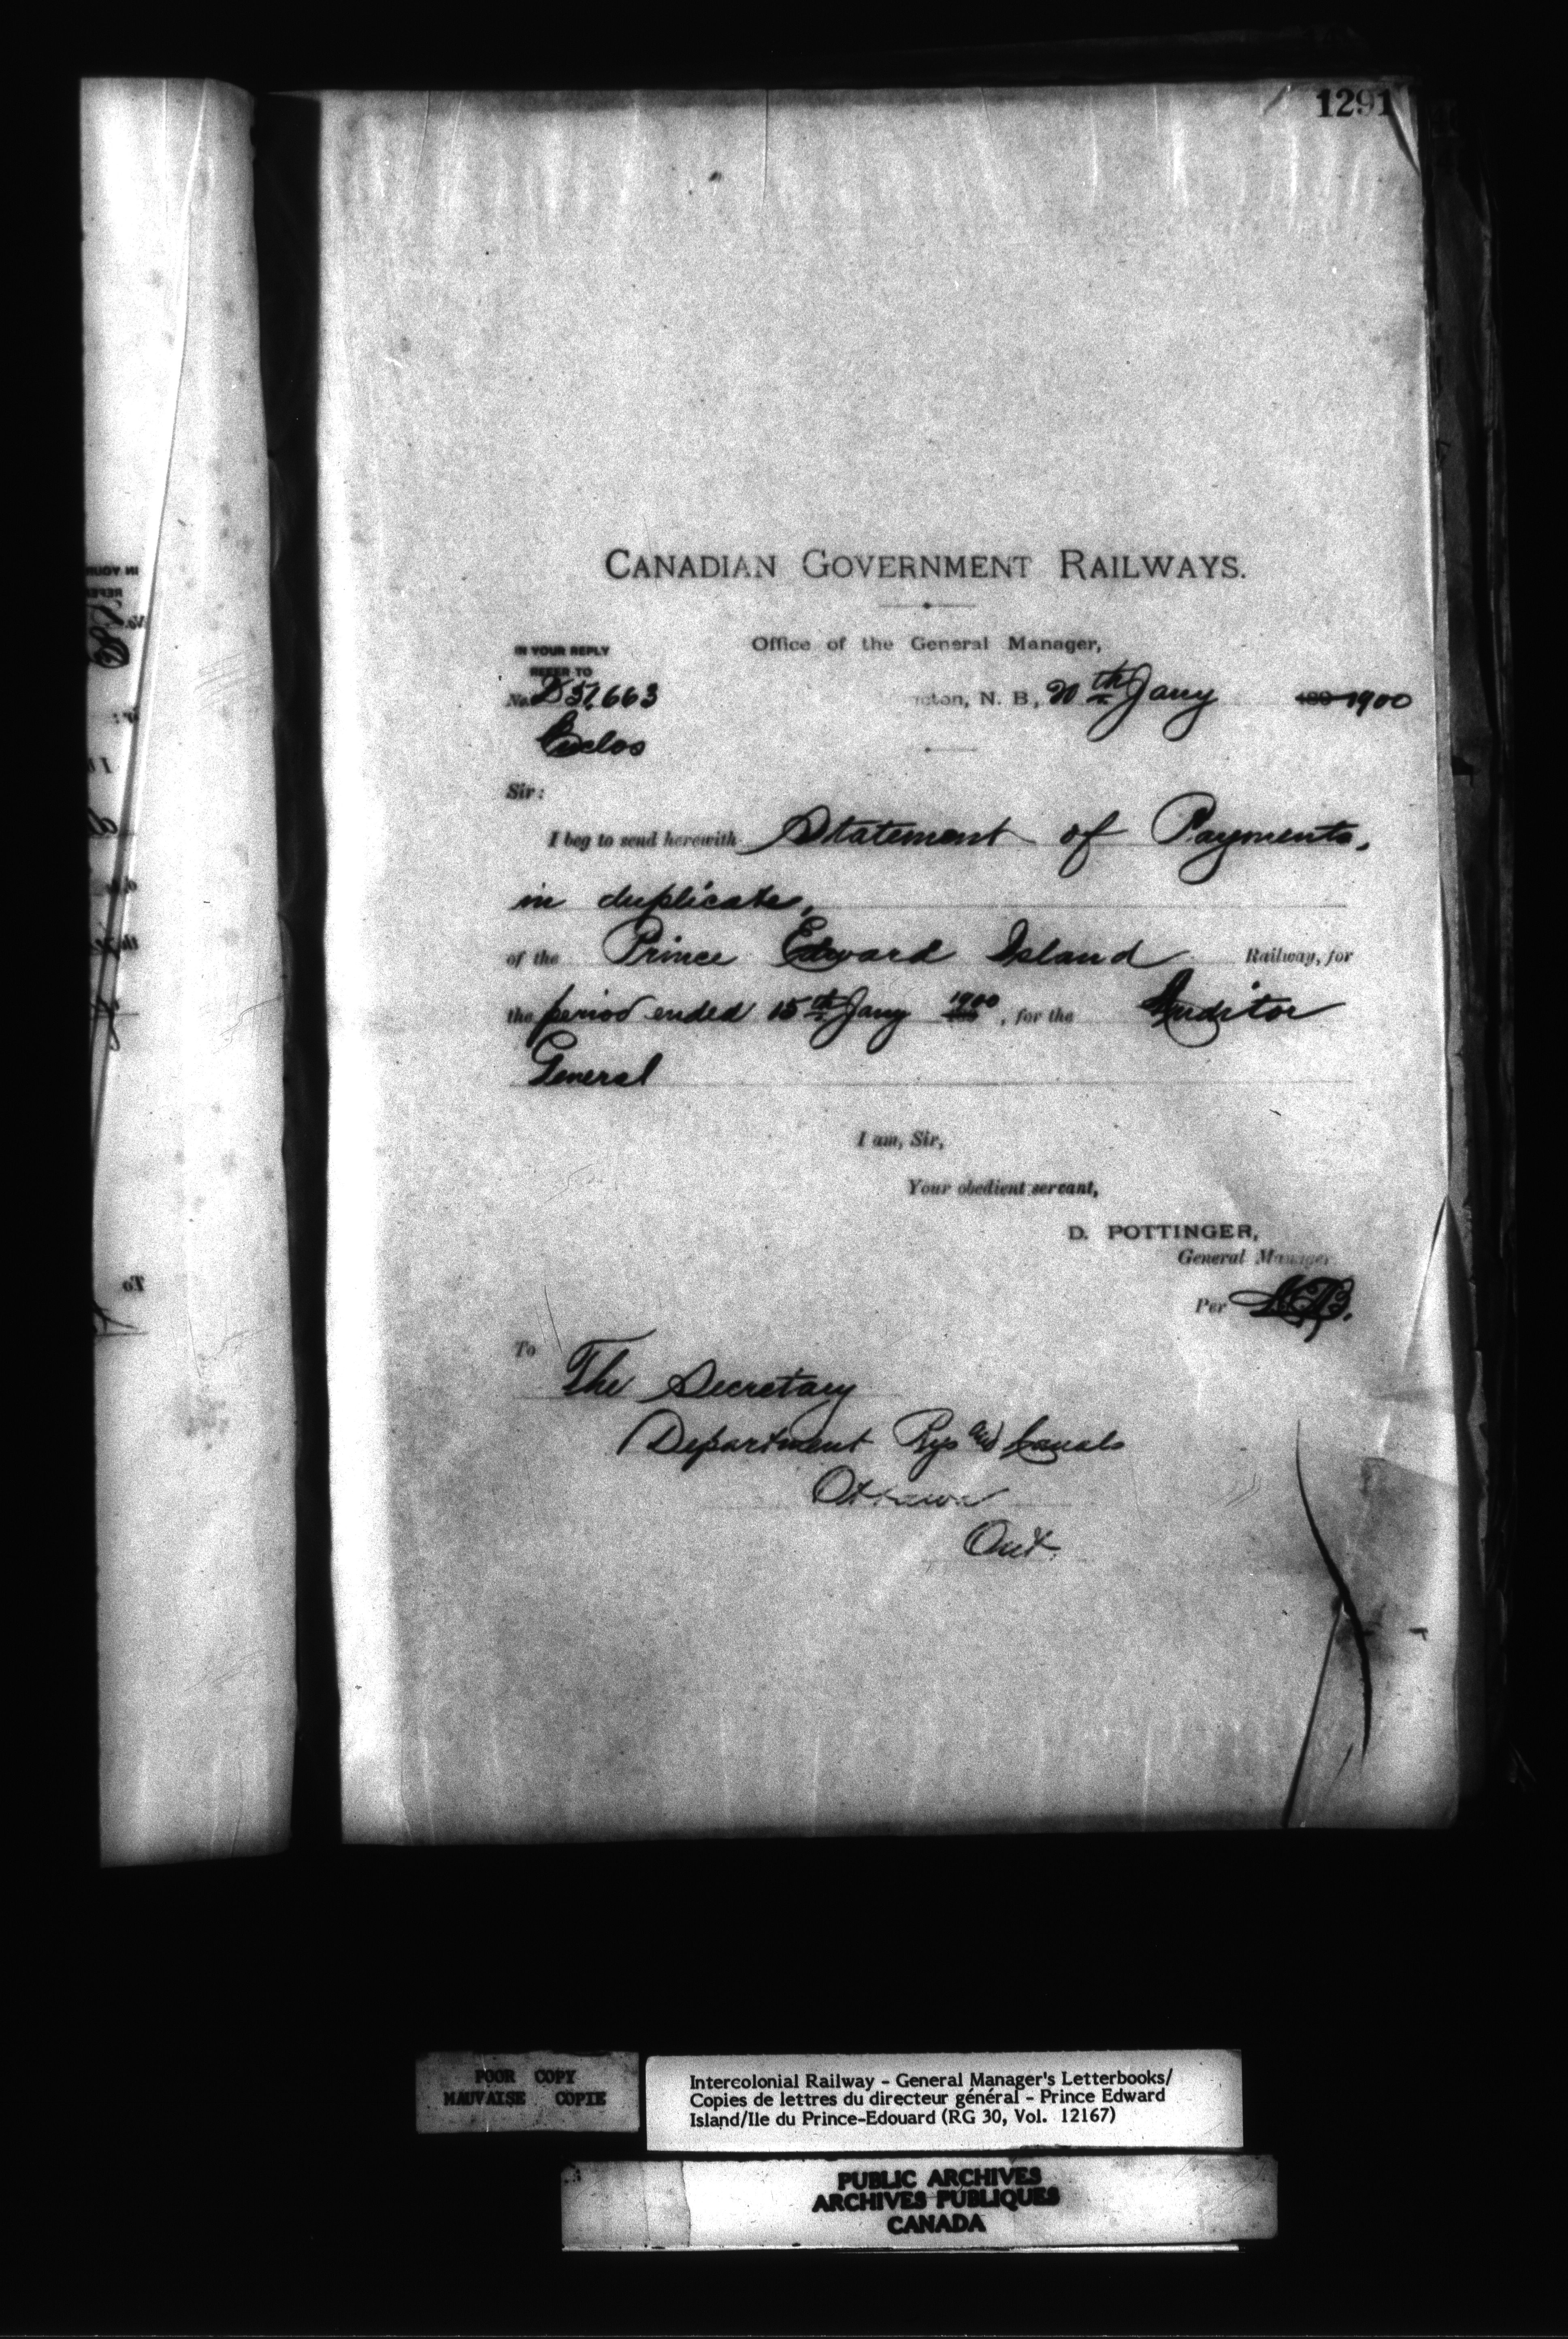 1291
CANADIAN GOVERNMENT RAILWAYS.
Office of the General Manager,
IN YOUR REPLY
REFER TO
No. D 51,663
cton, N. B., 20th Jany 189 1900
Enclos
Sir:
I beg to send herewith Statement of Payments,
in duplicate,
of the Prince Edward Island Railway, for
the period ended 15th Jany 1900, for the Auditor
General
I am, Sir,
Your obedient servant,
D. POTTINGER,
General Manager
Per
To The Secretary
Department Rys and Canals
Ottawa
Ont.
POOR COPY
MAUVAISE COPIE
Intercolonial Railway - General Manager's Letterbooks/
Copies de lettres du directeur général - Prince Edward
Island/Ile du Prince-Edouard (RG 30, Vol. 12167)
PUBLIC ARCHIVES
ARCHIVES PUBLIQUES
CANADA